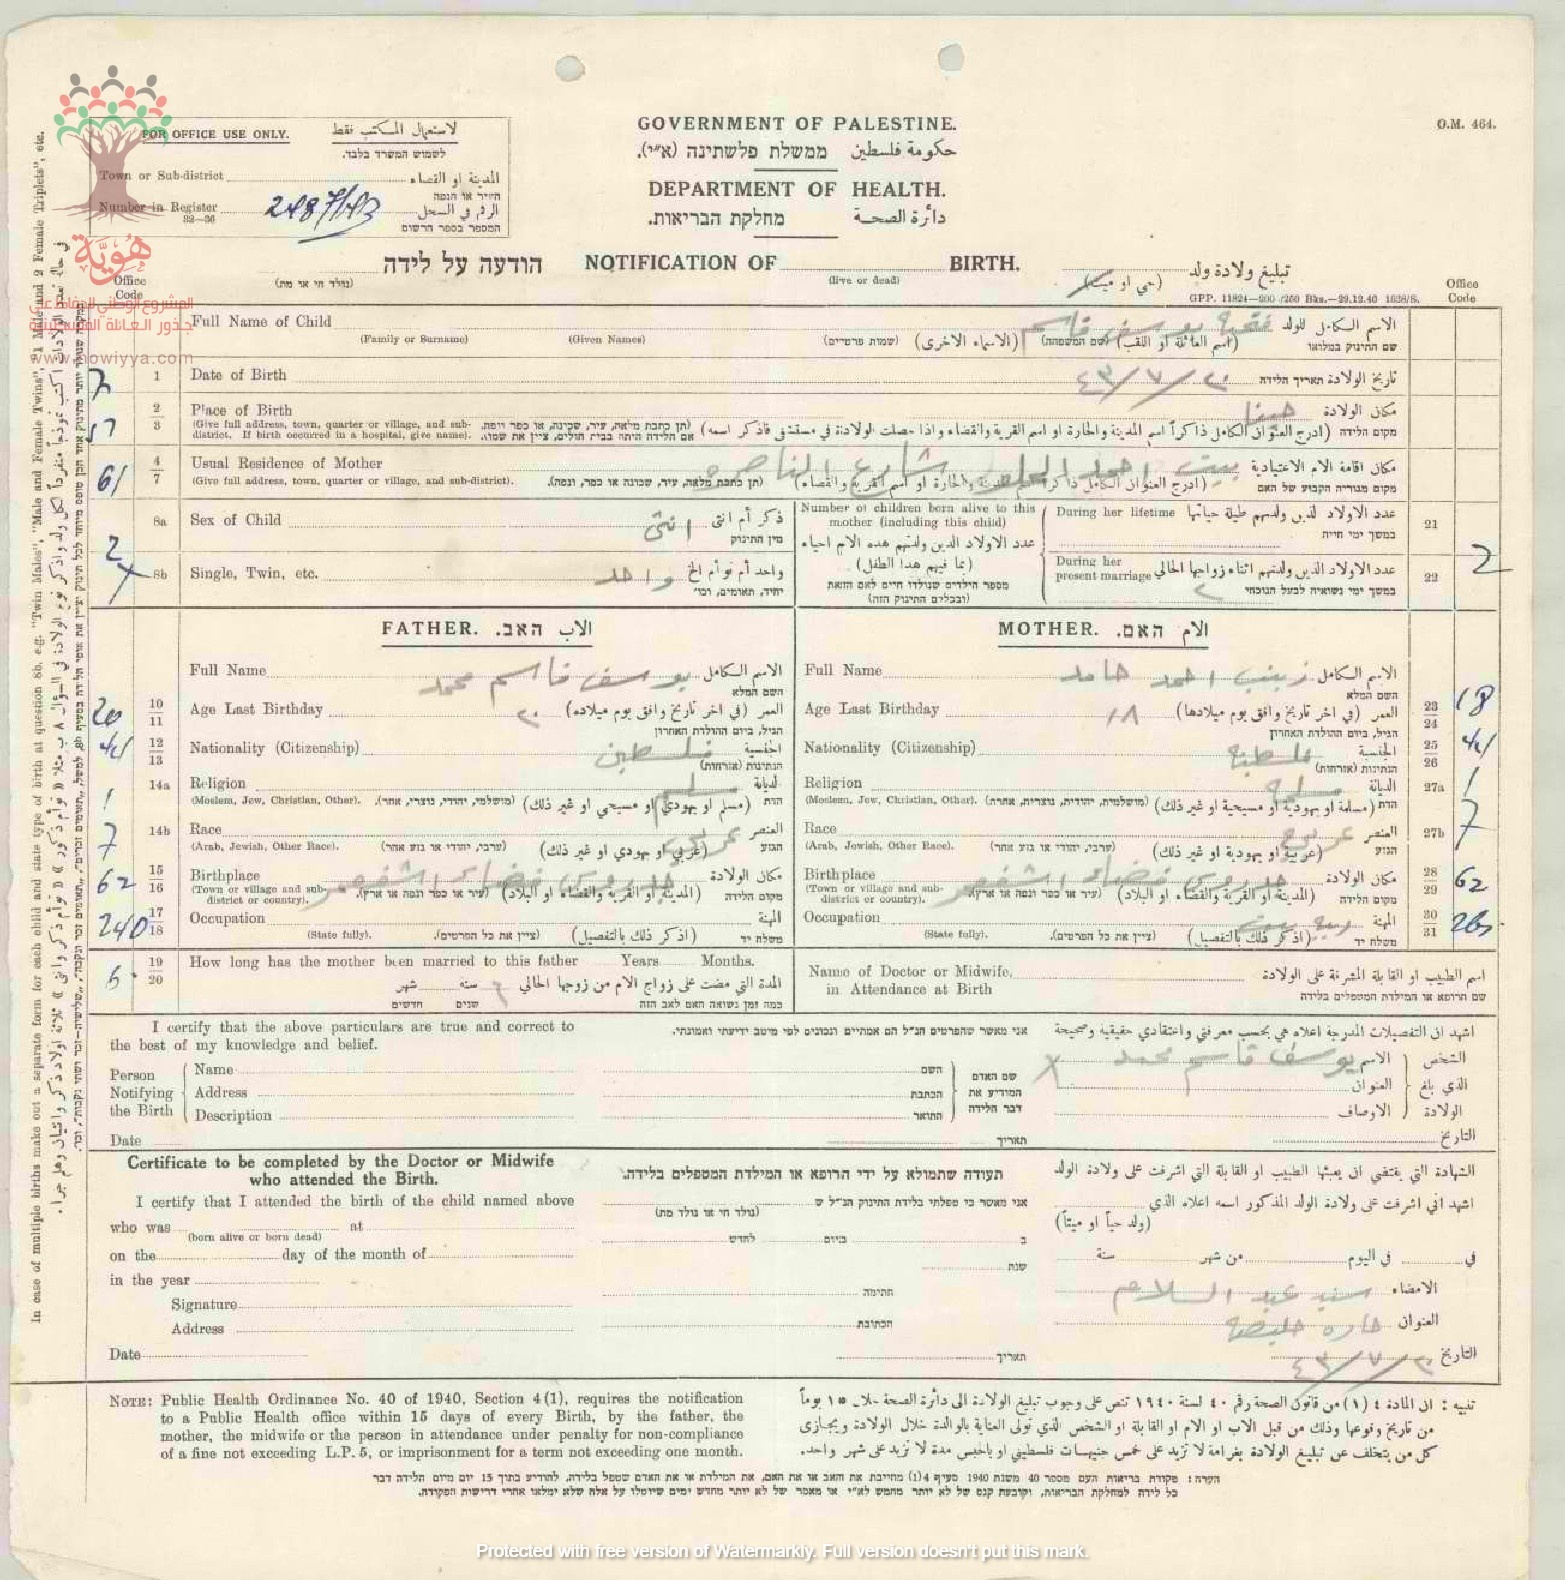 GOVERNMENT OF PALESTINE.
O.M. 464.
حكومة فلسطين ממשלת פלשתינה (א״י).
DEPARTMENT OF HEALTH.
دائرة الصحة מחלקת הבריאות.
FOR OFFICE USE ONLY. لاستعمال المكتب فقط
לשמוש המשרד בלבד.
Town or Sub-district المدينة او القضاء
העיר או הנפה
Number in Register 2487/43 الرقم في السجل
32—36
המספר בספר הרשום
הודעה על לידה NOTIFICATION OF BIRTH. تبليغ ولادة ولد
(נולד חי או מת) (live or dead) (حي او ميت)
GPP. 11824—200/250 Bks.—29.12.40 1638/S.
Office Code Office Code
هُوِيَّة
المشروع الوطني للحفاظ على
جذور العائلة الفلسطينية
www.howiyya.com
Full Name of Child فتحية يوسف قاسم الاسم الكامل للولد
(Family or Surname) (Given Names) (שמות פרטיים) (الاسماء الاخرى) (שם המשפחה) (اسم العائلة او اللقب) שם התינוק במלואו
7 1 Date of Birth ٢٠/٧/٤٣ تاريخ الولادة תאריך הלידה
2 Place of Birth حيفا مكان الولادة
3 (Give full address, town, quarter or village, and sub-district. If birth occurred in a hospital, give name).
(תן כתבת מלאה, עיר, שכונה, או כפר ונפה. אם הלידה היתה בבית חולים, ציין את שמו).
(ادرج العنوان الكامل ذاكراً اسم المدينة والحارة او اسم القرية والقضاء واذا حصلت الولادة في مستشفى فاذكر اسمه) מקום הלידה
61 4 Usual Residence of Mother بيت احمد شارع الناصرة مكان اقامة الام الاعتيادية
7 (Give full address, town, quarter or village, and sub-district). (תן כתבת מלאה, עיר, שכונה או כפר, ונפה). מקום מגוריה הקבוע של האם
8a Sex of Child انثى ذكر أم انثى
מין התינוק
2 8b Single, Twin, etc. واحد واحد أم توأم الخ
יחיד, תאומים, וכו׳
Number of children born alive to this mother (including this child)
عدد الاولاد الذين ولدتهم هذه الام احياء
(بما فيهم هذا الطفل)
מספר הילדים שנולדו חיים לאם הזאת
(ובכללם התינוק הזה)
During her lifetime عدد الاولاد الذين ولدتهم طيلة حياتها 21
במשך ימי חייה
During her present marriage عدد الاولاد الذين ولدتهم اثناء زواجها الحالي 22 2
במשך ימי נשואיה לבעל הנוכחי ٢
FATHER. الاب האב.
Full Name يوسف قاسم محمد الاسم الكامل
השם המלא
20 10 11 Age Last Birthday ٢٠ العمر (في اخر تاريخ وافق يوم ميلاده)
הגיל, ביום ההולדת האחרון
12 13 Nationality (Citizenship) فلسطين الجنسية
הנתינות (אזרחות)
1 14a Religion مسلم الديانة
(Moslem, Jew, Christian, Other). (מושלמי, יהודי, נוצרי, אחר). (مسلم او يهودي او مسيحي او غير ذلك) הדת
7 14b Race عربي العنصر
(Arab, Jewish, Other Race). (ערבי, יהודי או גזע אחר) (عربي او يهودي او غير ذلك) הגזע
62 15 16 Birthplace قضاء مكان الولادة
(Town or village and sub-district or country). (עיר או כפר ונפה או ארץ). (المدينة او القرية والقضاء او البلاد) מקום הלידה
240 17 18 Occupation المهنة
(State fully). (ציין את כל הפרטים). (اذكر ذلك بالتفصيل) משלח יד
MOTHER. الام האם.
Full Name زينب احمد حامد الاسم الكامل
השם המלא
Age Last Birthday ١٨ العمر (في اخر تاريخ وافق يوم ميلادها) 23 24 18
הגיל, ביום ההולדת האחרון
Nationality (Citizenship) فلسطينية الجنسية 25 26
הנתינות (אזרחות)
Religion مسلمة الديانة 27a 1
(Moslem, Jew, Christian, Other). (מושלמית, יהודית, נוצרית, אחרת) (مسلمة او يهودية او مسيحية او غير ذلك) הדת
Race عربية العنصر 27b 7
(Arab, Jewish, Other Race). (ערבי, יהודי או גזע אחר) (عربية او يهودية او غير ذلك) הגזע
Birthplace قضاء مكان الولادة 28 29 62
(Town or village and sub-district or country). (עיר או כפר ונפה או ארץ). (المدينة او القرية والقضاء او البلاد) מקום הלידה
Occupation المهنة 30 31
(State fully). (ציין את כל הפרטים). (اذكر ذلك بالتفصيل) משלח יד
19 20 How long has the mother been married to this father Years Months.
المدة التي مضت على زواج الام من زوجها الحالي سنة شهر
כמה זמן נשואה האם לאב הזה שנים חדשים
Name of Doctor or Midwife, in Attendance at Birth
اسم الطبيب او القابلة المشرفة على الولادة
שם הרופא או המילדת המטפלים בלידה
I certify that the above particulars are true and correct to the best of my knowledge and belief.
אני מאשר שהפרטים הנ״ל הם אמתיים ונכונים לפי מיטב ידיעתי ואמונתי.
اشهد ان التفصيلات المدرجة اعلاه هي بحسب معرفتي واعتقادي حقيقية وصحيحة
Person Notifying the Birth
Name השם
Address הכתבת
Description התואר
שם האדם המודיע את דבר הלידה
الشخص الذي بلغ الولادة
الاسم يوسف قاسم محمد
العنوان
الاوصاف
Date תאריך التاريخ
Certificate to be completed by the Doctor or Midwife
who attended the Birth.
I certify that I attended the birth of the child named above
who was at
(born alive or born dead)
on the day of the month of
in the year
Signature
Address
Date
תעודה שתמולא על ידי הרופא או המילדת המטפלים בלידה.
אני מאשר כי טפלתי בלידת התינוק הנ״ל ש
(נולד חי או נולד מת)
ב ביום לחדש
שנת
חתימה
הכתובת
תאריך
الشهادة التي يقتضي ان يعبئها الطبيب او القابلة التي اشرفت على ولادة الولد
اشهد اني اشرفت على ولادة الولد المذكور اسمه اعلاه الذي
(ولد حياً او ميتاً)
في في اليوم من شهر سنة
الامضاء عبد السلام
العنوان حارة حليصة
التاريخ ٢٠/٧/٤٣
NOTE: Public Health Ordinance No. 40 of 1940, Section 4(1), requires the notification
to a Public Health office within 15 days of every Birth, by the father, the
mother, the midwife or the person in attendance under penalty for non-compliance
of a fine not exceeding L.P. 5, or imprisonment for a term not exceeding one month.
تنبيه : ان المادة ٤ (١) من قانون الصحة رقم ٤٠ لسنة ١٩٤٠ تنص على وجوب تبليغ الولادة الى دائرة الصحة خلال ١٥ يوماً
من تاريخ وقوعها وذلك من قبل الاب او الام او القابلة او الشخص الذي تولى العناية بالوالدة خلال الولادة ويجازى
كل من يتخلف عن تبليغ الولادة بغرامة لا تزيد على خمس جنيهات فلسطيني او بالحبس مدة لا تزيد على شهر واحد.
הערה: פקודת בריאות העם מספר 40 משנת 1940 סעיף 4(1) מחייבת את האב או את האם, את המילדת או את האדם שטפל בלידה, להודיע בתוך 15 יום מיום הלידה דבר
כל לידה למחלקת הבריאות, וקובעת קנס של לא יותר מחמש לא״י או מאסר של לא יותר מחדש ימים שיוטלו על אלה שלא ימלאו אחרי דרישות הפקודה.
In case of multiple births make out a separate form for each child and state type of birth at question 8b. e.g. "Twin Males", "Male and Female Twins", "1 Male and 2 Female Triplets", etc.
Protected with free version of Watermarkly. Full version doesn't put this mark.